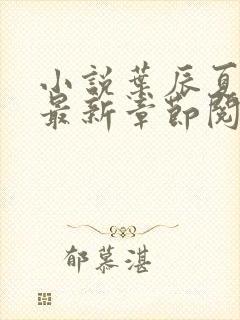 小説葉辰夏
最新章節閱
郁慕湛